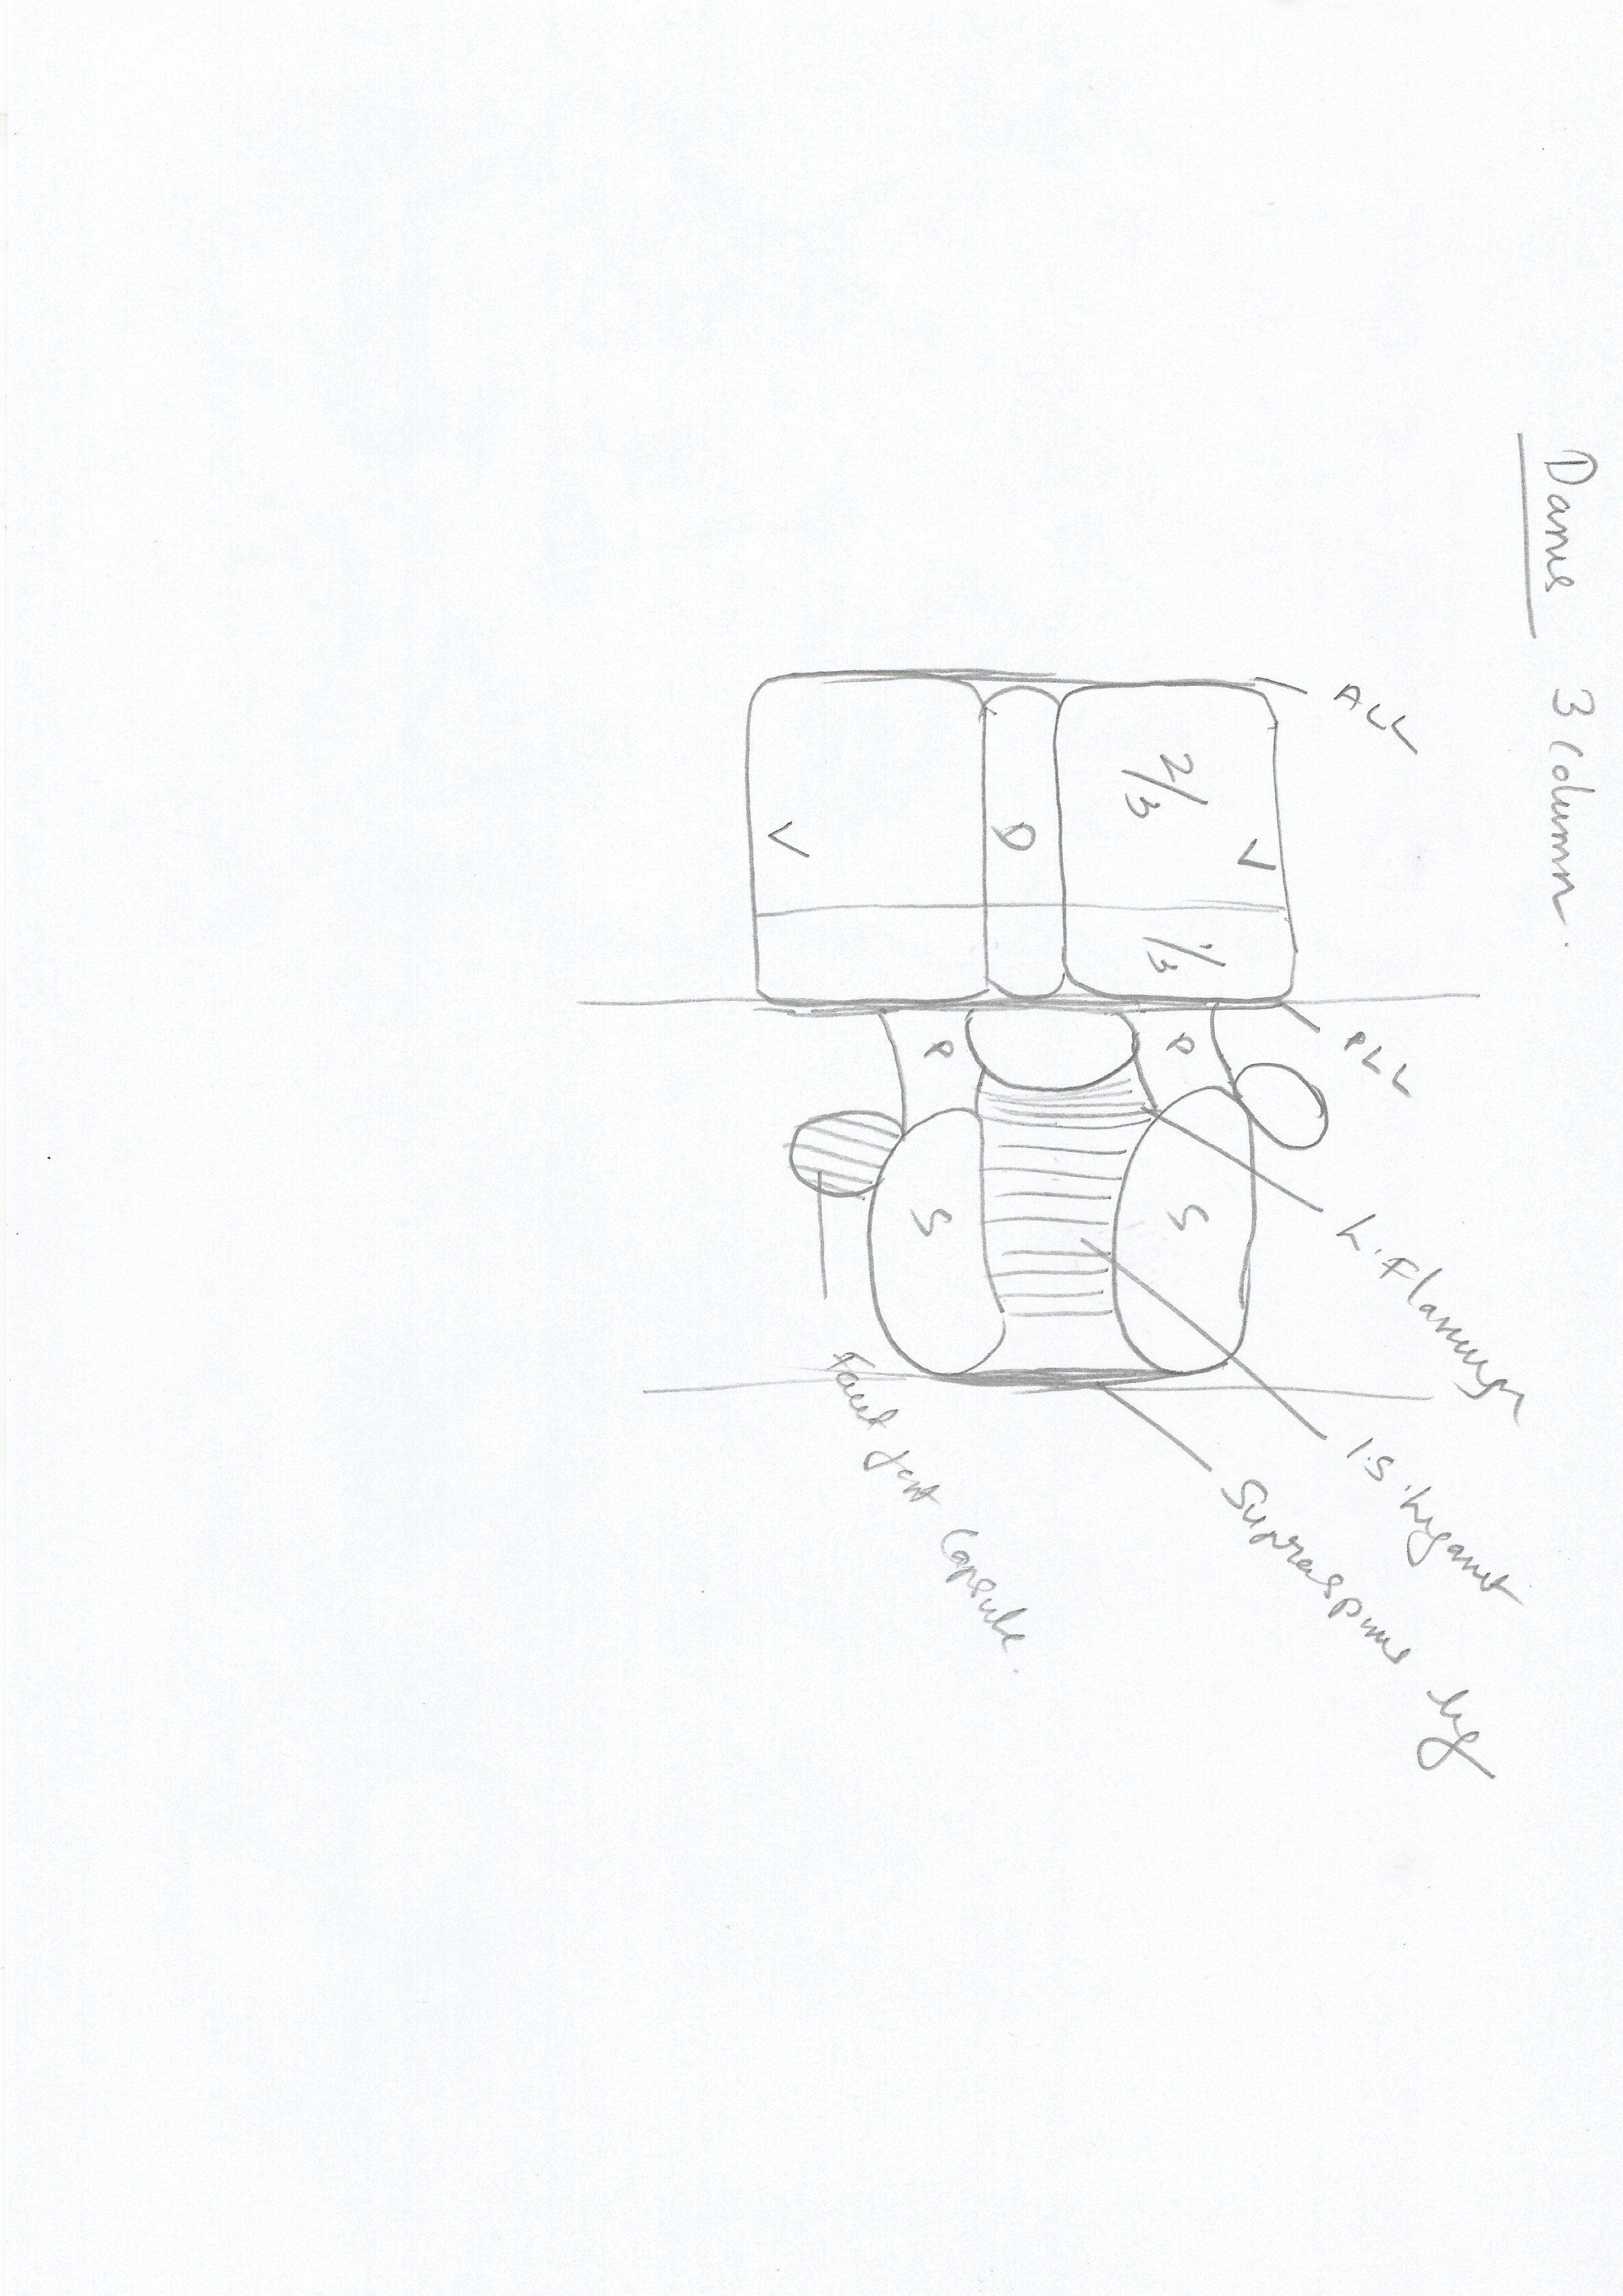 Danis 3 Column.
ALL
PLL
L. Flavum
I.S. ligamt
Supraspins lig
V
2/3
1/3
P
S
D
P
S
V
Facet joint Capsule.